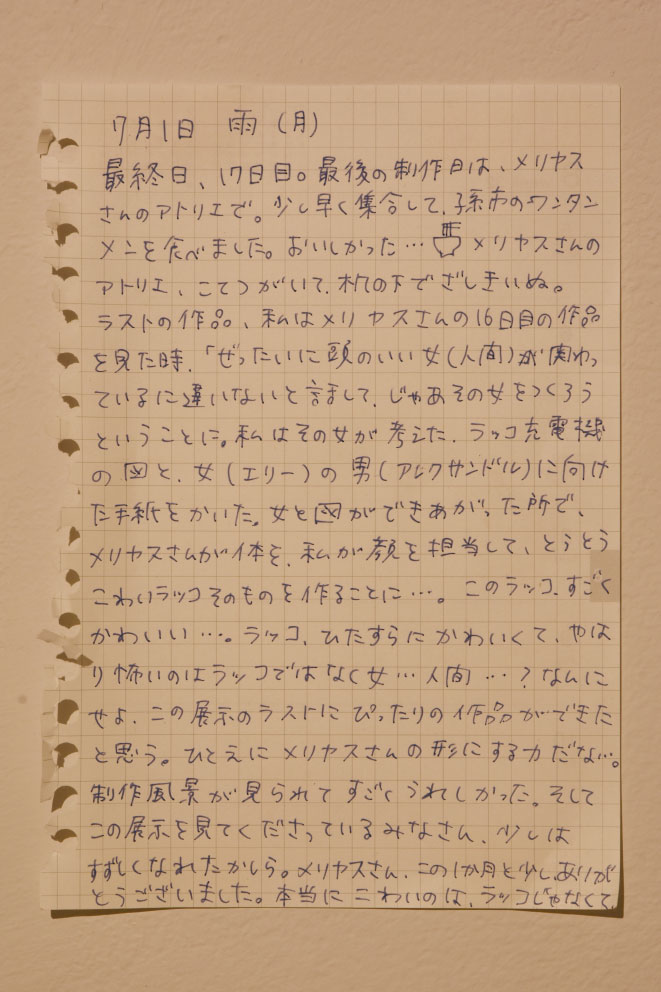 7月1日 雨(月)
最終日、17日目。最後の制作日は、メリヤス
さんのアトリエで。少し早く集合して、孫市のワンタン
メンを食べました。おいしかった… メリヤスさんの
アトリエ、こてつがいて、机の下でざしきいぬ。
ラストの作品、私はメリヤスさんの16日目の作品
を見た時、「ぜったいに頭のいい女(人間)が関わっ
ているに違いないと言まして、じゃあその女をつくろう
ということに。私はその女が考えた、ラッコ充電機
の図と、女(エリー)の男(アレクサンドル)に向け
た手紙をかいた。女と図ができあがった所で、
メリヤスさんが体を、私が顔を担当して、とうとう
こわいラッコそのものを作ることに…。このラッコ、すごく
かわいい…。ラッコ、ひたすらにかわいくて、やは
り怖いのはラッコではなく女…人間…?なんに
せよ、この展示のラストにぴったりの作品ができた
と思う。ひとえにメリヤスさんの形にする力だな…。
制作風景が見られてすごくうれしかった。そして
この展示を見てくださっているみなさん、少しは
すずしくなれたかしら。メリヤスさん、この1か月と少し、ありが
とうございました。本当にこわいのは、ラッコじゃなくて、